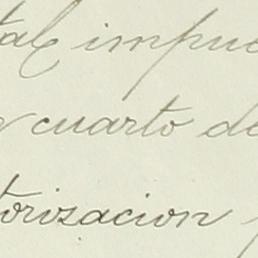 tal impue
cuarto de
torizacion